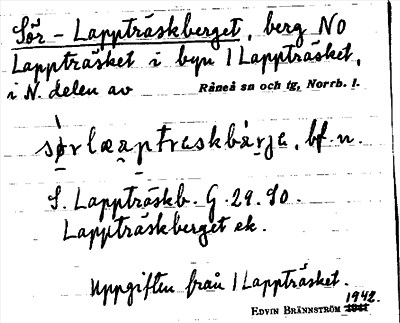 Sör-Lappträskberget, berg NO
Lappträsket i byn 1 Lappträsket,
i N. delen av Råneå sn och tg, Norrb. l.
sørlæaptraskbàrja, bf. n.
S. Lappträskb. G. 29. SO.
Lappträskberget ek.
Uppgiften från 1 Lappträsket.
1942.
EDVIN BRÄNNSTRÖM 1941